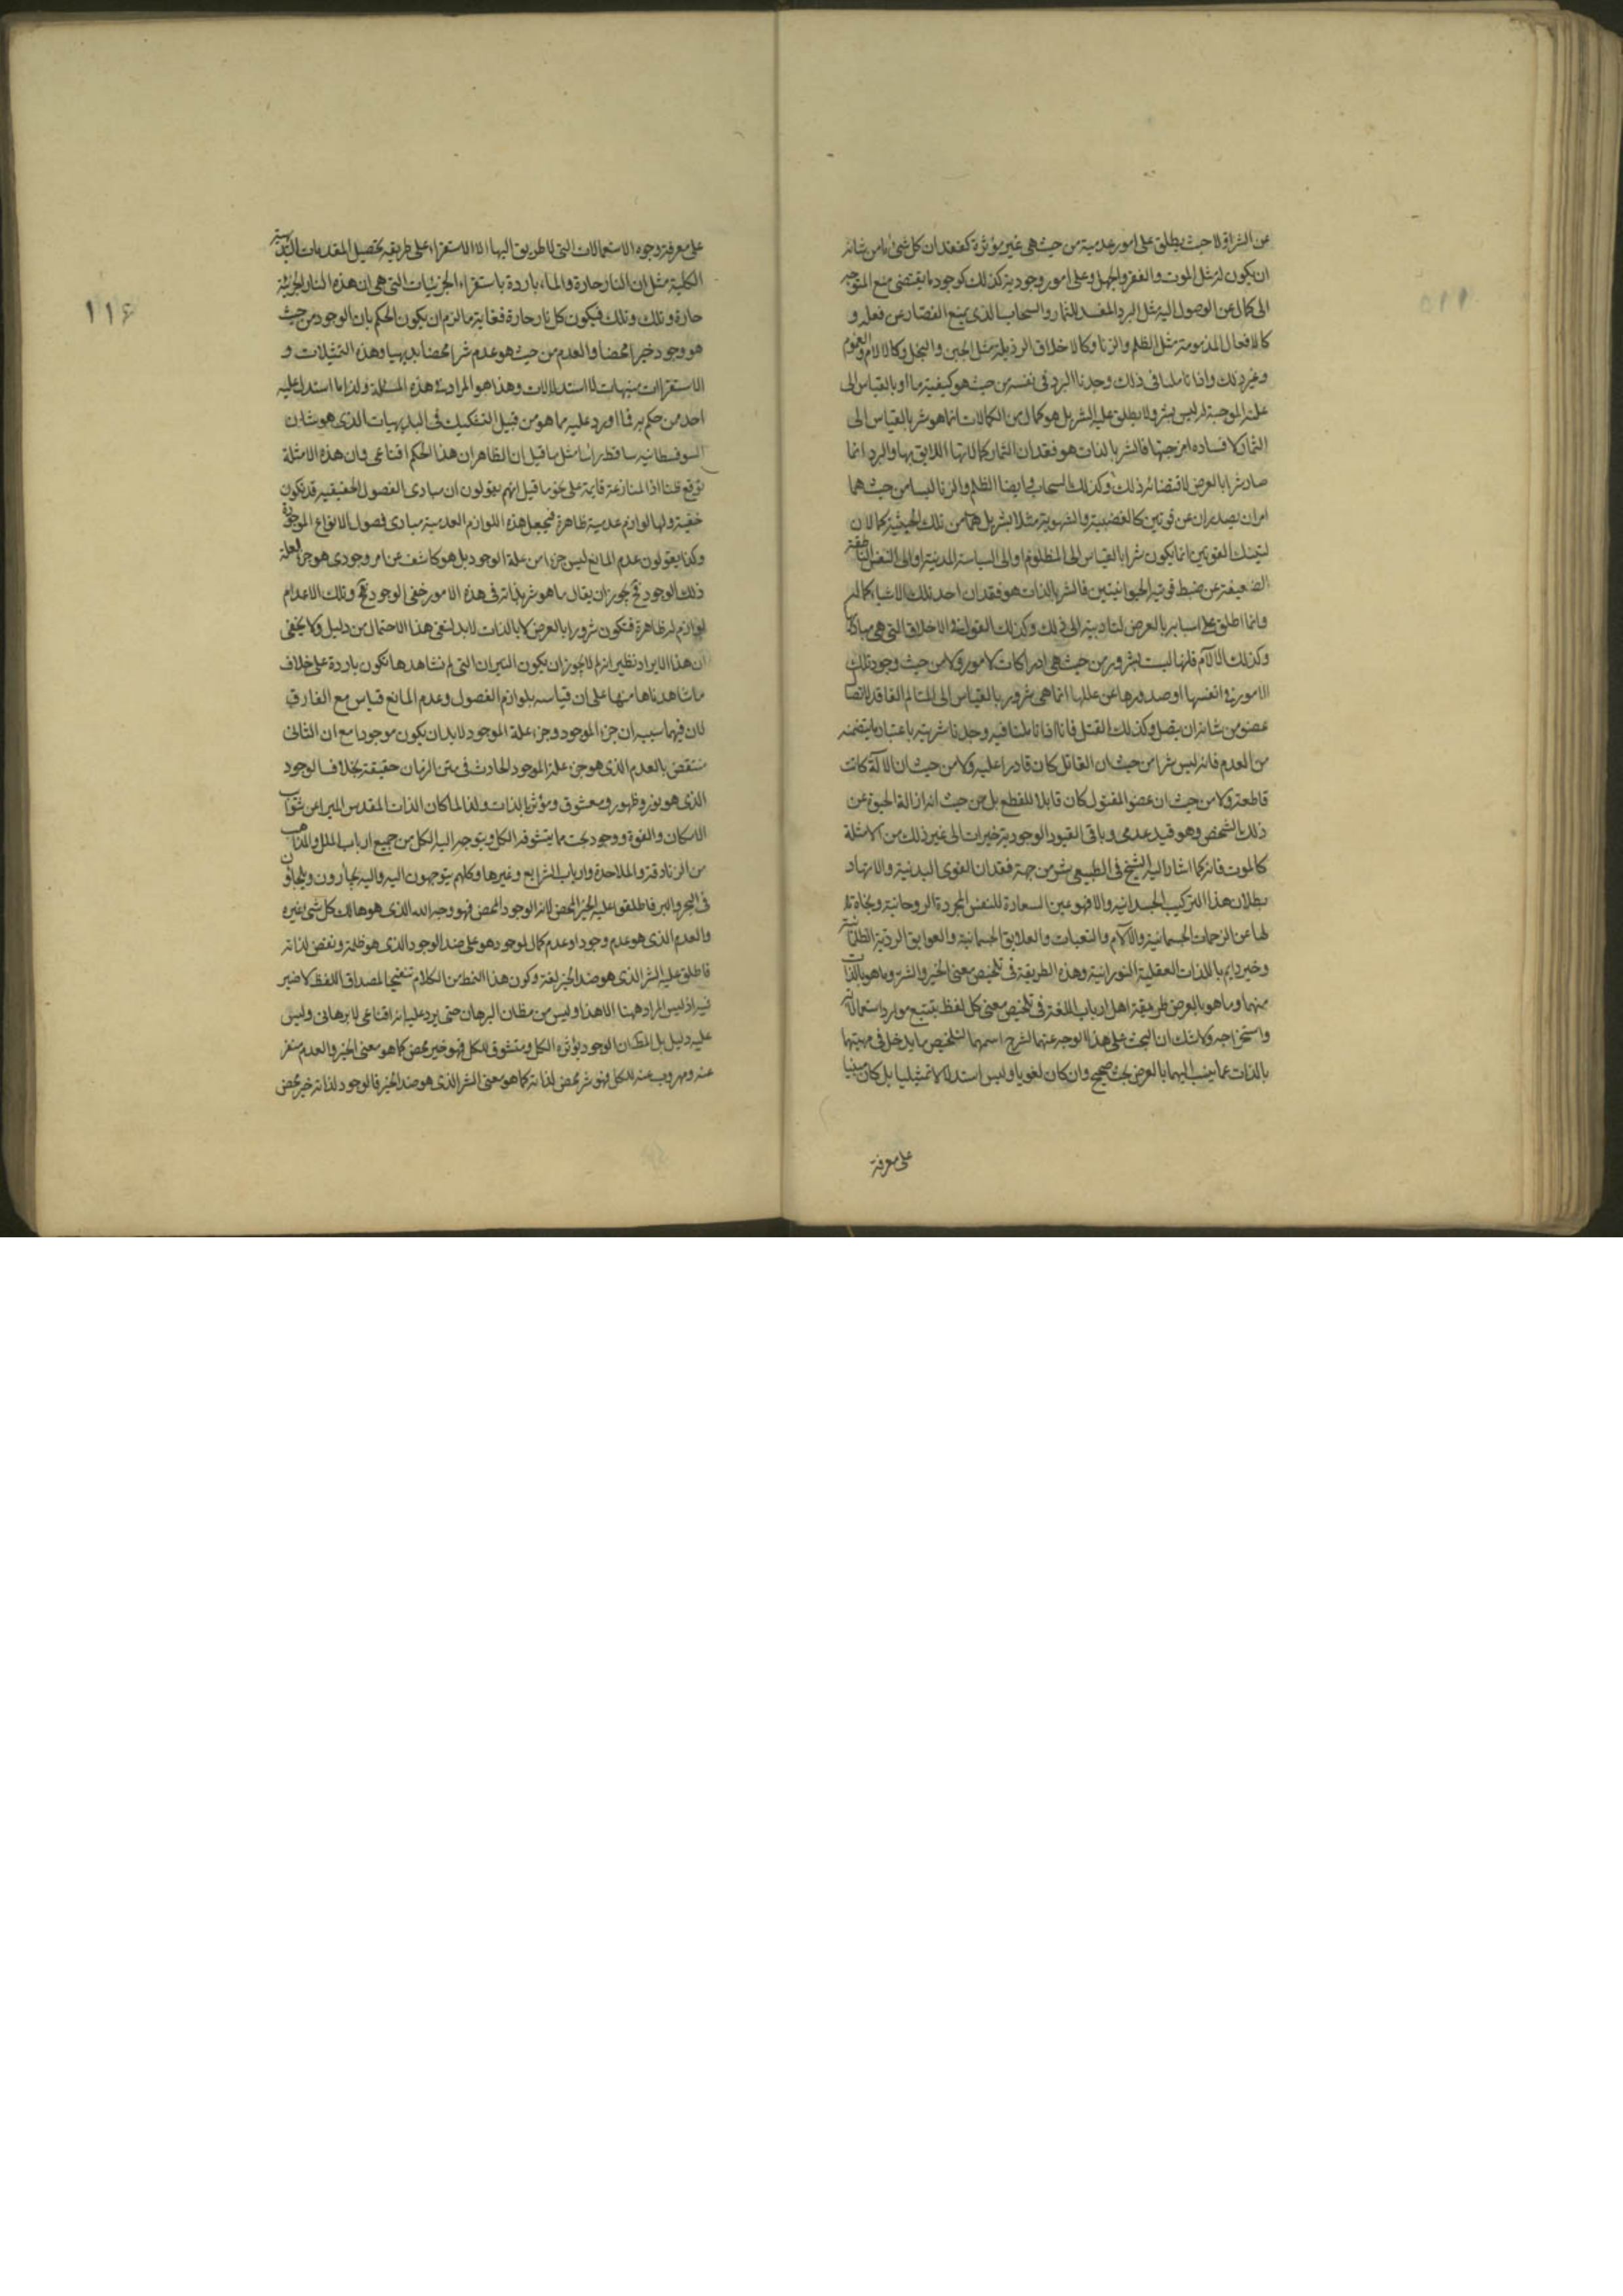 عن الشر اولا حيث يطلق على امور عدمية من حيث هى غير مؤثرة كفقدان كل شئ ما من شانه
ان يكون له مثل الموت والفقر والجهل وعلى امور وجودية كذلك كوجود ما يقتضى منع المتوجه
الى كمال عن الوصول اليه مثل البرد المفسد للثمار والسحاب الذى يمنع القصار عن فعله و
كالافعال المذمومة مثل الظلم والزنا وكالاخلاق الرذيلة مثل الجبن والبخل وكالالام والغموم
وغير ذلك واذا تاملنا فى ذلك وجدنا البرد فى نفسه من حيث هو كيفية ما او بالقياس الى
علته الموجبة له ليس بشر ولا يطلق عليه الشر بل هو كمال من الكمالات انما هو شر بالقياس الى
الثمار لافساده امزجتها فالشر بالذات هو فقدان الثمار كمالاتها اللايق بها والبرد انما
صار شرا بالعرض لاقتضائه ذلك وكذلك السحاب وايضا الظلم والزنا ليسا من حيث هما
امران يصدران عن قوتين كالغضبية والشهوية مثلا بشر بل هما من تلك الحيثية كمالان
لتينك القوتين انما يكون شرا بالقياس الى المظلوم او الى السياسة المدنية او الى النفس الناطقة
الضعيفة عن ضبط قوتيه الحيوانيتين فالشر بالذات هو فقدان احد تلك الاشياء كماله
وانما اطلق على اسبابه بالعرض لتاديته الى ذلك وكذلك القول فى الاخلاق التى هى مباد لها
وكذلك الالام فانها ليست بشرور من حيث هى ادراكات لامور ولا من حيث وجود تلك
الامور فى انفسها او صدورها عن عللها انما هى شرور بالقياس الى المتالم الفاقد لاتصال
عضو من شانه ان يتصل وكذلك القتل فانا اذا تاملنا فيه وجدنا شريته باعتبار ما يتضمنه
من العدم فانه ليس شرا من حيث ان القاتل كان قادرا عليه ولا من حيث ان الالة كانت
قاطعة ولا من حيث ان عضو المقتول كان قابلا للقطع بل من حيث انه ازالة الحيوة عن
ذلك الشخص وهو قيد عدمى وباقى القيود الوجودية خيرات الى غير ذلك من الامثلة
كالموت فانه كما اشار اليه الشيخ فى الطبيعى شر من جهة فقدان القوى البدنية والانهاد
بطلان هذا التركيب الجسدانيه والا فهو عين السعادة للنفس المجردة الروحانية ونجاة
لها عن الزحمات الجسمانية والالام والتعبات والعلايق الجسمانية والعوايق الردية الظلمانية
وخير دايم باللذات العقلية النورانية وهذه الطريقة فى تلخيص معنى الخير والشر وما هو بالذات
منهما وما هو بالعرض طريقة اهل ارباب اللغة فى تلخيص معنى كل لفظ بتتبع موارد استعمالاته
واستخراجه ولا شك ان البحث على هذا الوجه عنهما لشرح اسمهما لتلخيص ما يدخل فى مهيتها
بالذات عما ينسب اليهما بالعرض بحث صحيح وان كان لغويا وليس استدلالا تمثيليا بل كان مبنيا
على معرفة
١١٦
على معرفة وجوه الاستعمالات التى لا طريق اليها الا الاستقراء على طريقه تحصيل المقدمات البديهية
الكلية مثل ان النار حارة والماء باردة باستقراء الجزئيات التى هى ان هذه النار الجزئية
حارة وتلك وتلك فيكون كل نار حارة فغاية ما لزم ان يكون الحكم بان الوجود من حيث
هو وجود خيرا محضا والعدم من حيث هو عدم شرا محضا بديهيا وهذه التمثيلات و
الاستقرات منبهات لا استدلالات وهذا هو المراد فى هذه المسئلة ولذا ما استدل عليه
احد من حكم به فما اورد عليه مما هو من قبيل التشكيك فى البديهيات الذى هو شان
السوفسطائيه ساقط راسا مثل ما قيل ان الظاهر ان هذا الحكم اقناعى وان هذه الامثلة
توقع ظنا اذا المنازعة قايمة على نحو ما قيل انهم يقولون ان مبادى الفصول الحقيقيه قد تكون
خفية ولها لوازم عدمية ظاهرة فيجعل هذه اللوازم العدمية مبادى فصول الانواع الموجودة
وكذا يقولون عدم المانع ليس جزا من علة الوجود بل هو كاشف عن امر وجودى هو جزء لعلة
ذلك الوجود فح يجوز ان يقال ما هو شر بذاته فى هذه الامور خفى الوجود فح وتلك الاعدام
لوازم له ظاهرة فتكون شرورا بالعرض لا بالذات لا بد لنفى هذا الاحتمال من دليل ولا يخفى
ان هذا الايراد نظير انه لم لا يجوز ان يكون النيران التى لم نشاهدها تكون باردة على خلاف
ما شاهدناها منها على ان قياسه بلوازم الفصول وعدم المانع قياس مع الفارق
لان فيهما سببه ان جزء الموجود وجزء علة الموجود لا بد ان يكون موجودا مع ان الثانى
منتقض بالعدم الذى هو جزء علة الموجود الحادث فى متن الزمان حقيقة بخلاف الوجود
الذى هو نور وظهور ومعشوق ومؤثر بالذات ولذا لما كان الذات المقدس المبرا عن شوايب
الامكان والقوة ووجود بحت مما يتشوقه الكل ويتوجه اليه الكل من جميع ارباب الملل والمذاهب
من الزنادقة والملاحدة وارباب الشرايع وغيرها وكلهم يتوجهون اليه واليه يجارون ويلجاون
فى البحر والبر فاطلقوا عليه الخير المحض لانه الوجود المحض فهو وجه الله الذى هو هالك كل شئ غيره
والعدم الذى هو عدم وجود او عدم كمال لوجود هو على ضد الوجود الذى هو ظلمة ونقص لذاته
فاطلق عليه الشر الذى هو ضد الخير لغة وكون هذا النمط من الكلام تنقيحا لمصداق اللفظ لا ضير
فيه اذ ليس المراد ههنا الا هذا وليس من مظان البرهان حتى يرد عليه انه اقناعى لا برهانى وليس
عليه دليل بل لما كان الوجود يؤثره الكل ومتشوق للكل فهو خير محض كما هو معنى الخير والعدم متنفر
عنه ومهروب عنه للكل فهو شر محض لذاته كما هو معنى الشر الذى هو ضد الخير فالوجود لذاته خير محض